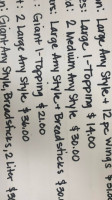 n: Large Any Style + 12 pc Wings $
es: Large 1-Topping $14.00
d: 2 Medium Any Style $30.00
rs: Large Any Style + Breadsticks $30.
n: Giant 1-Topping $21.00
t: 2 Large Any Style $36.00
n: Giant Any Style, Breadsticks, 2 Liter $3